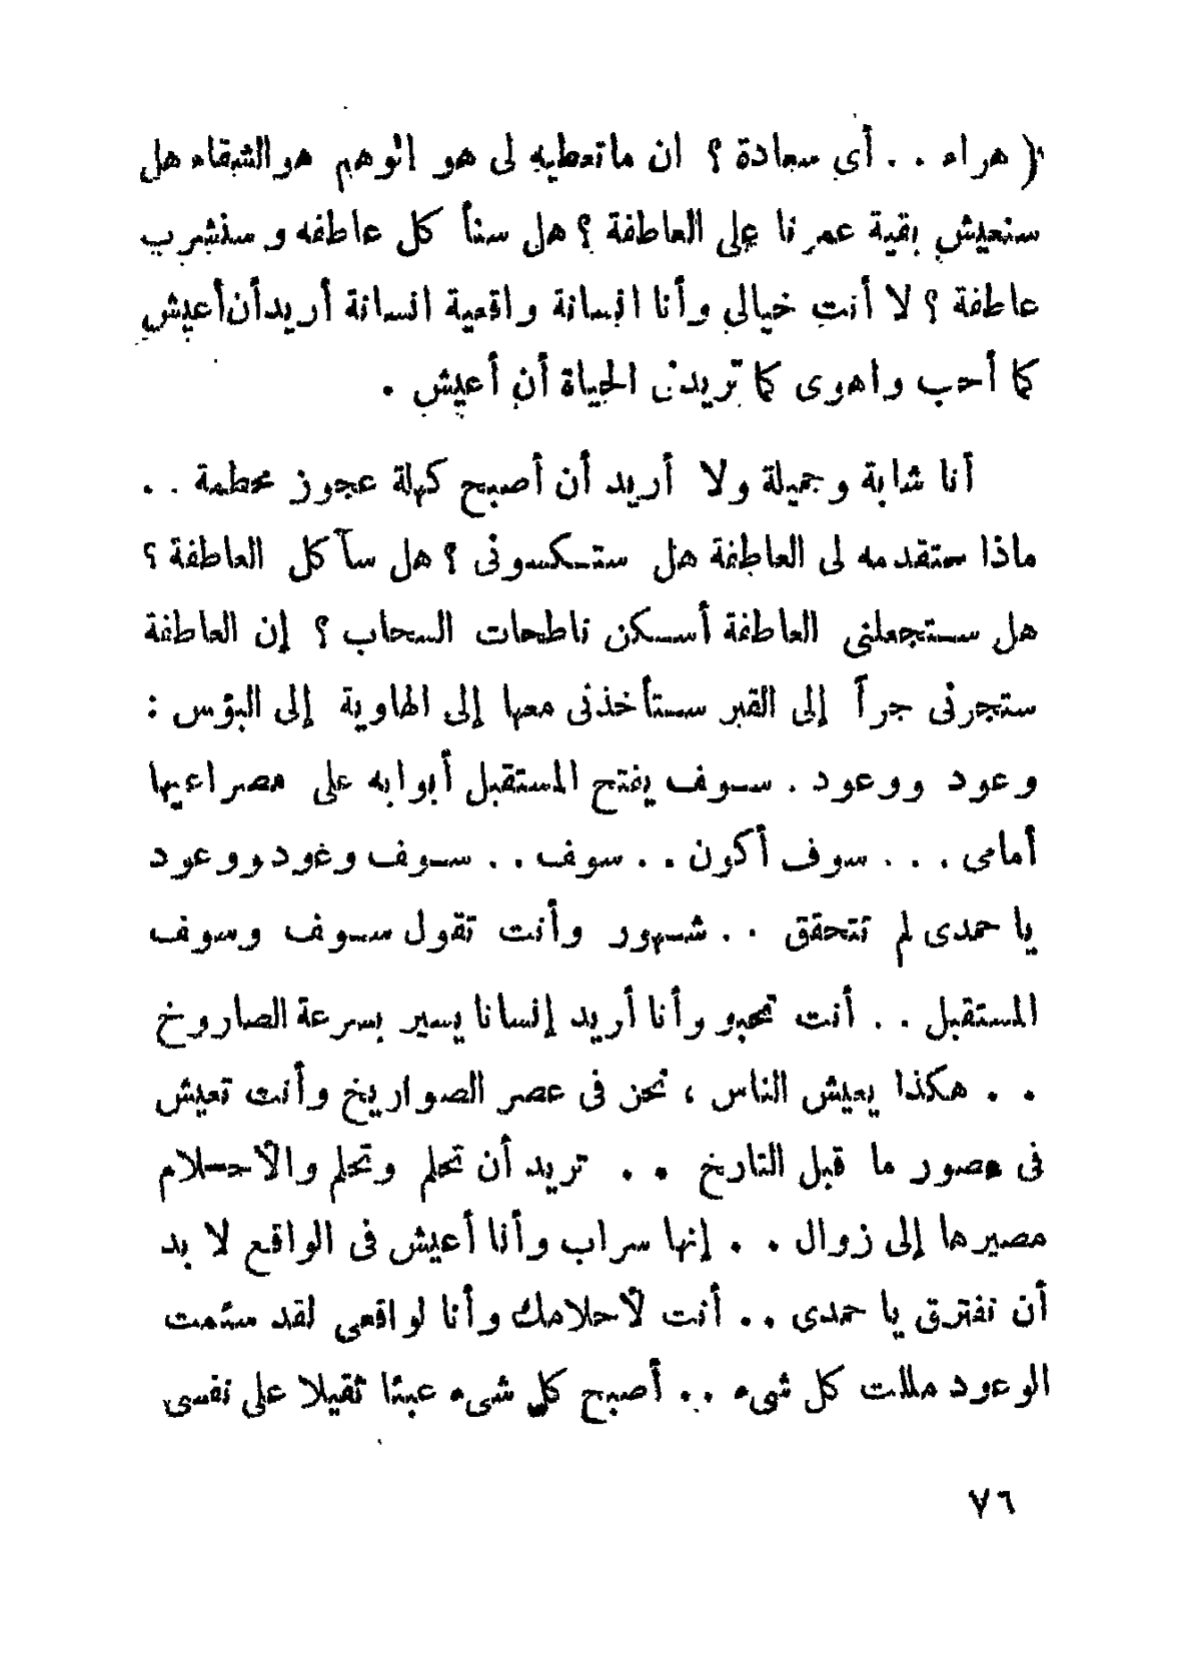 ( هراء . . أى سعادة ؟ ان ماتعطيه لى هو الوهم هو الشقاء هل
سنعيش بقية عمرنا على العاطفة ؟ هل سنأ كل عاطفه و سنشرب
عاطفة ؟ لا أنت خيالى وأنا انسانة واقعية انسانة أريد أن أعيش
كما أحب واهوى كما تريدنى الحياة أن أعيش .
أنا شابة وجميلة ولا أريد أن أصبح كهلة عجوز محطمة . .
ماذا ستقدمه لى العاطفة هل ستكسونى ؟ هل سآ كل العاطفة ؟
هل ستجعلنى العاطفة أسكن ناطحات السحاب ؟ إن العاطفة
ستجرنى جراً إلى القبر ستأخذنى معها إلى الهاوية إلى البؤس :
وعود ووعود . سوف يفتح المستقبل أبوابه على مصراعيها
أمامى . . . سوف أكون . . سوف . . سوف وغود ووعود
يا حمدى لم تتحقق . . شهور وأنت تقول سوف وسوف
المستقبل . . أنت تحبو وأنا أريد إنسانا يسير بسرعة الصاروخ
. . هكذا يعيش الناس ، نحن فى عصر الصواريخ وأنت تعيش
فى عصور ما قبل التارخ . . تريد أن تحلم وتحلم والأحلام
مصيرها إلى زوال . . إنها سراب وأنا أعيش فى الواقع لا بد
أن نفترق يا حمدى . . أنت لأحلامك وأنا لواقعى لقد سئمت
الوعود مللت كل شىء . . أصبح كل شىء عبئا ثقيلا على نفسى
٧٦